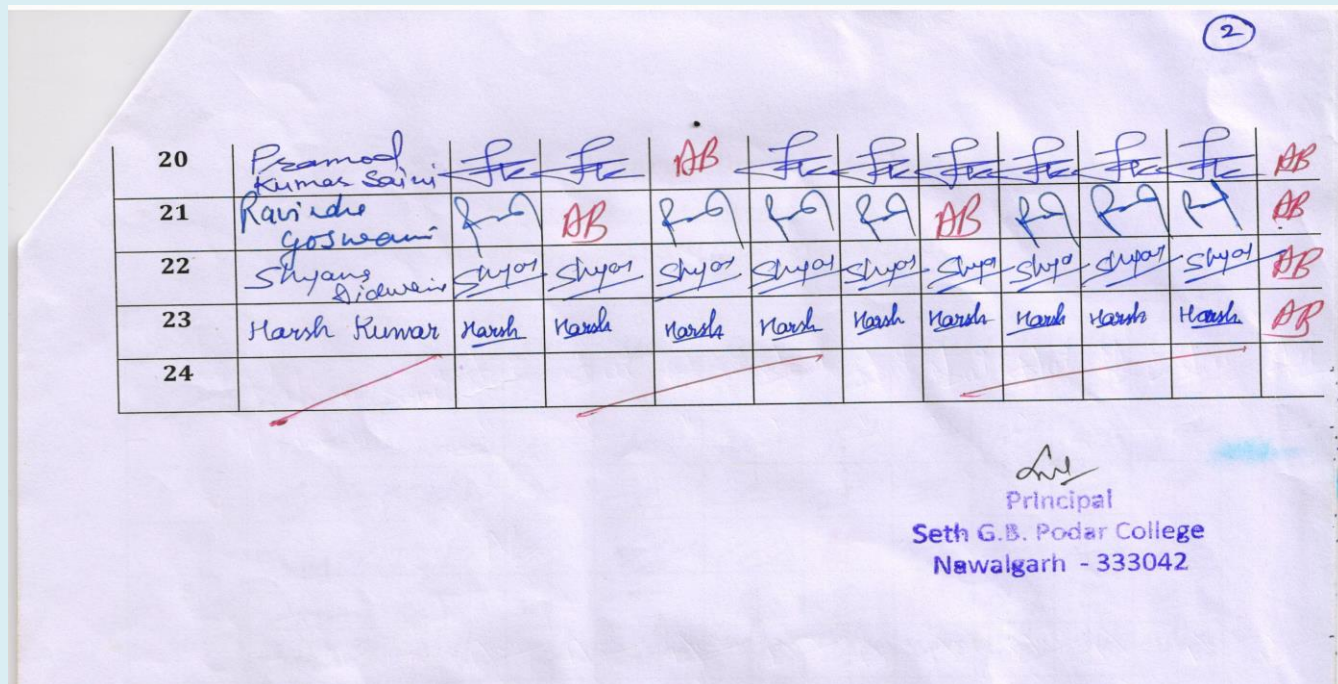 2
20 Pramod Kumar Saini AB AB
21 Ravindra Goswami AB AB AB
22 Shyam Didwani Shyam Shyam Shyam Shyam Shyam Shyam Shyam Shyam Shyam AB
23 Harsh Kumar Harsh Harsh Harsh Harsh Harsh Harsh Harsh Harsh Harsh AB
24
Principal
Seth G.B. Podar College
Nawalgarh - 333042